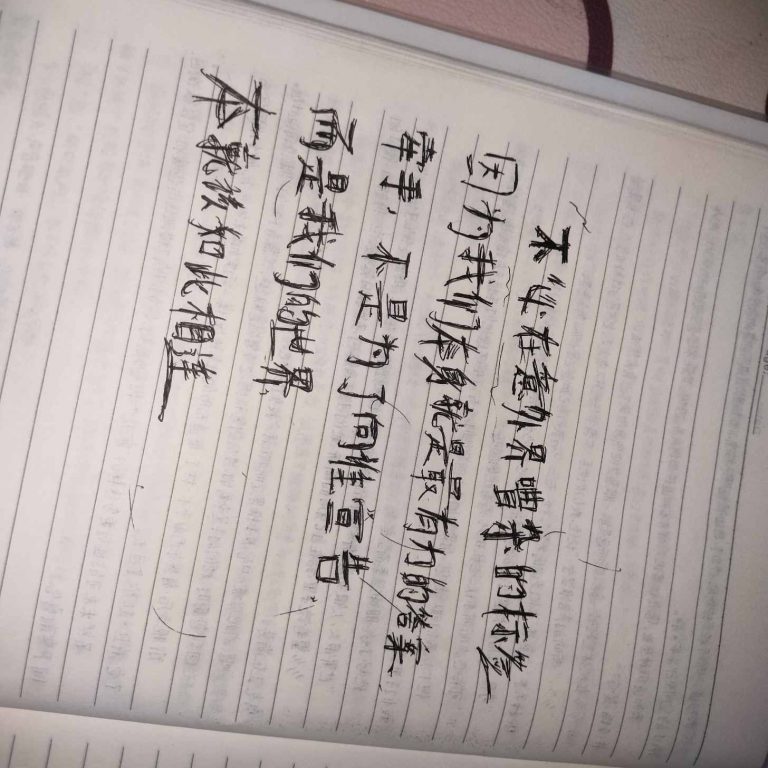 不必在意外界冒染的标签
因为我们本身就是最有力的答案
牵手，不是为了向谁宣告
而是我们的世界，
本就该如此相连